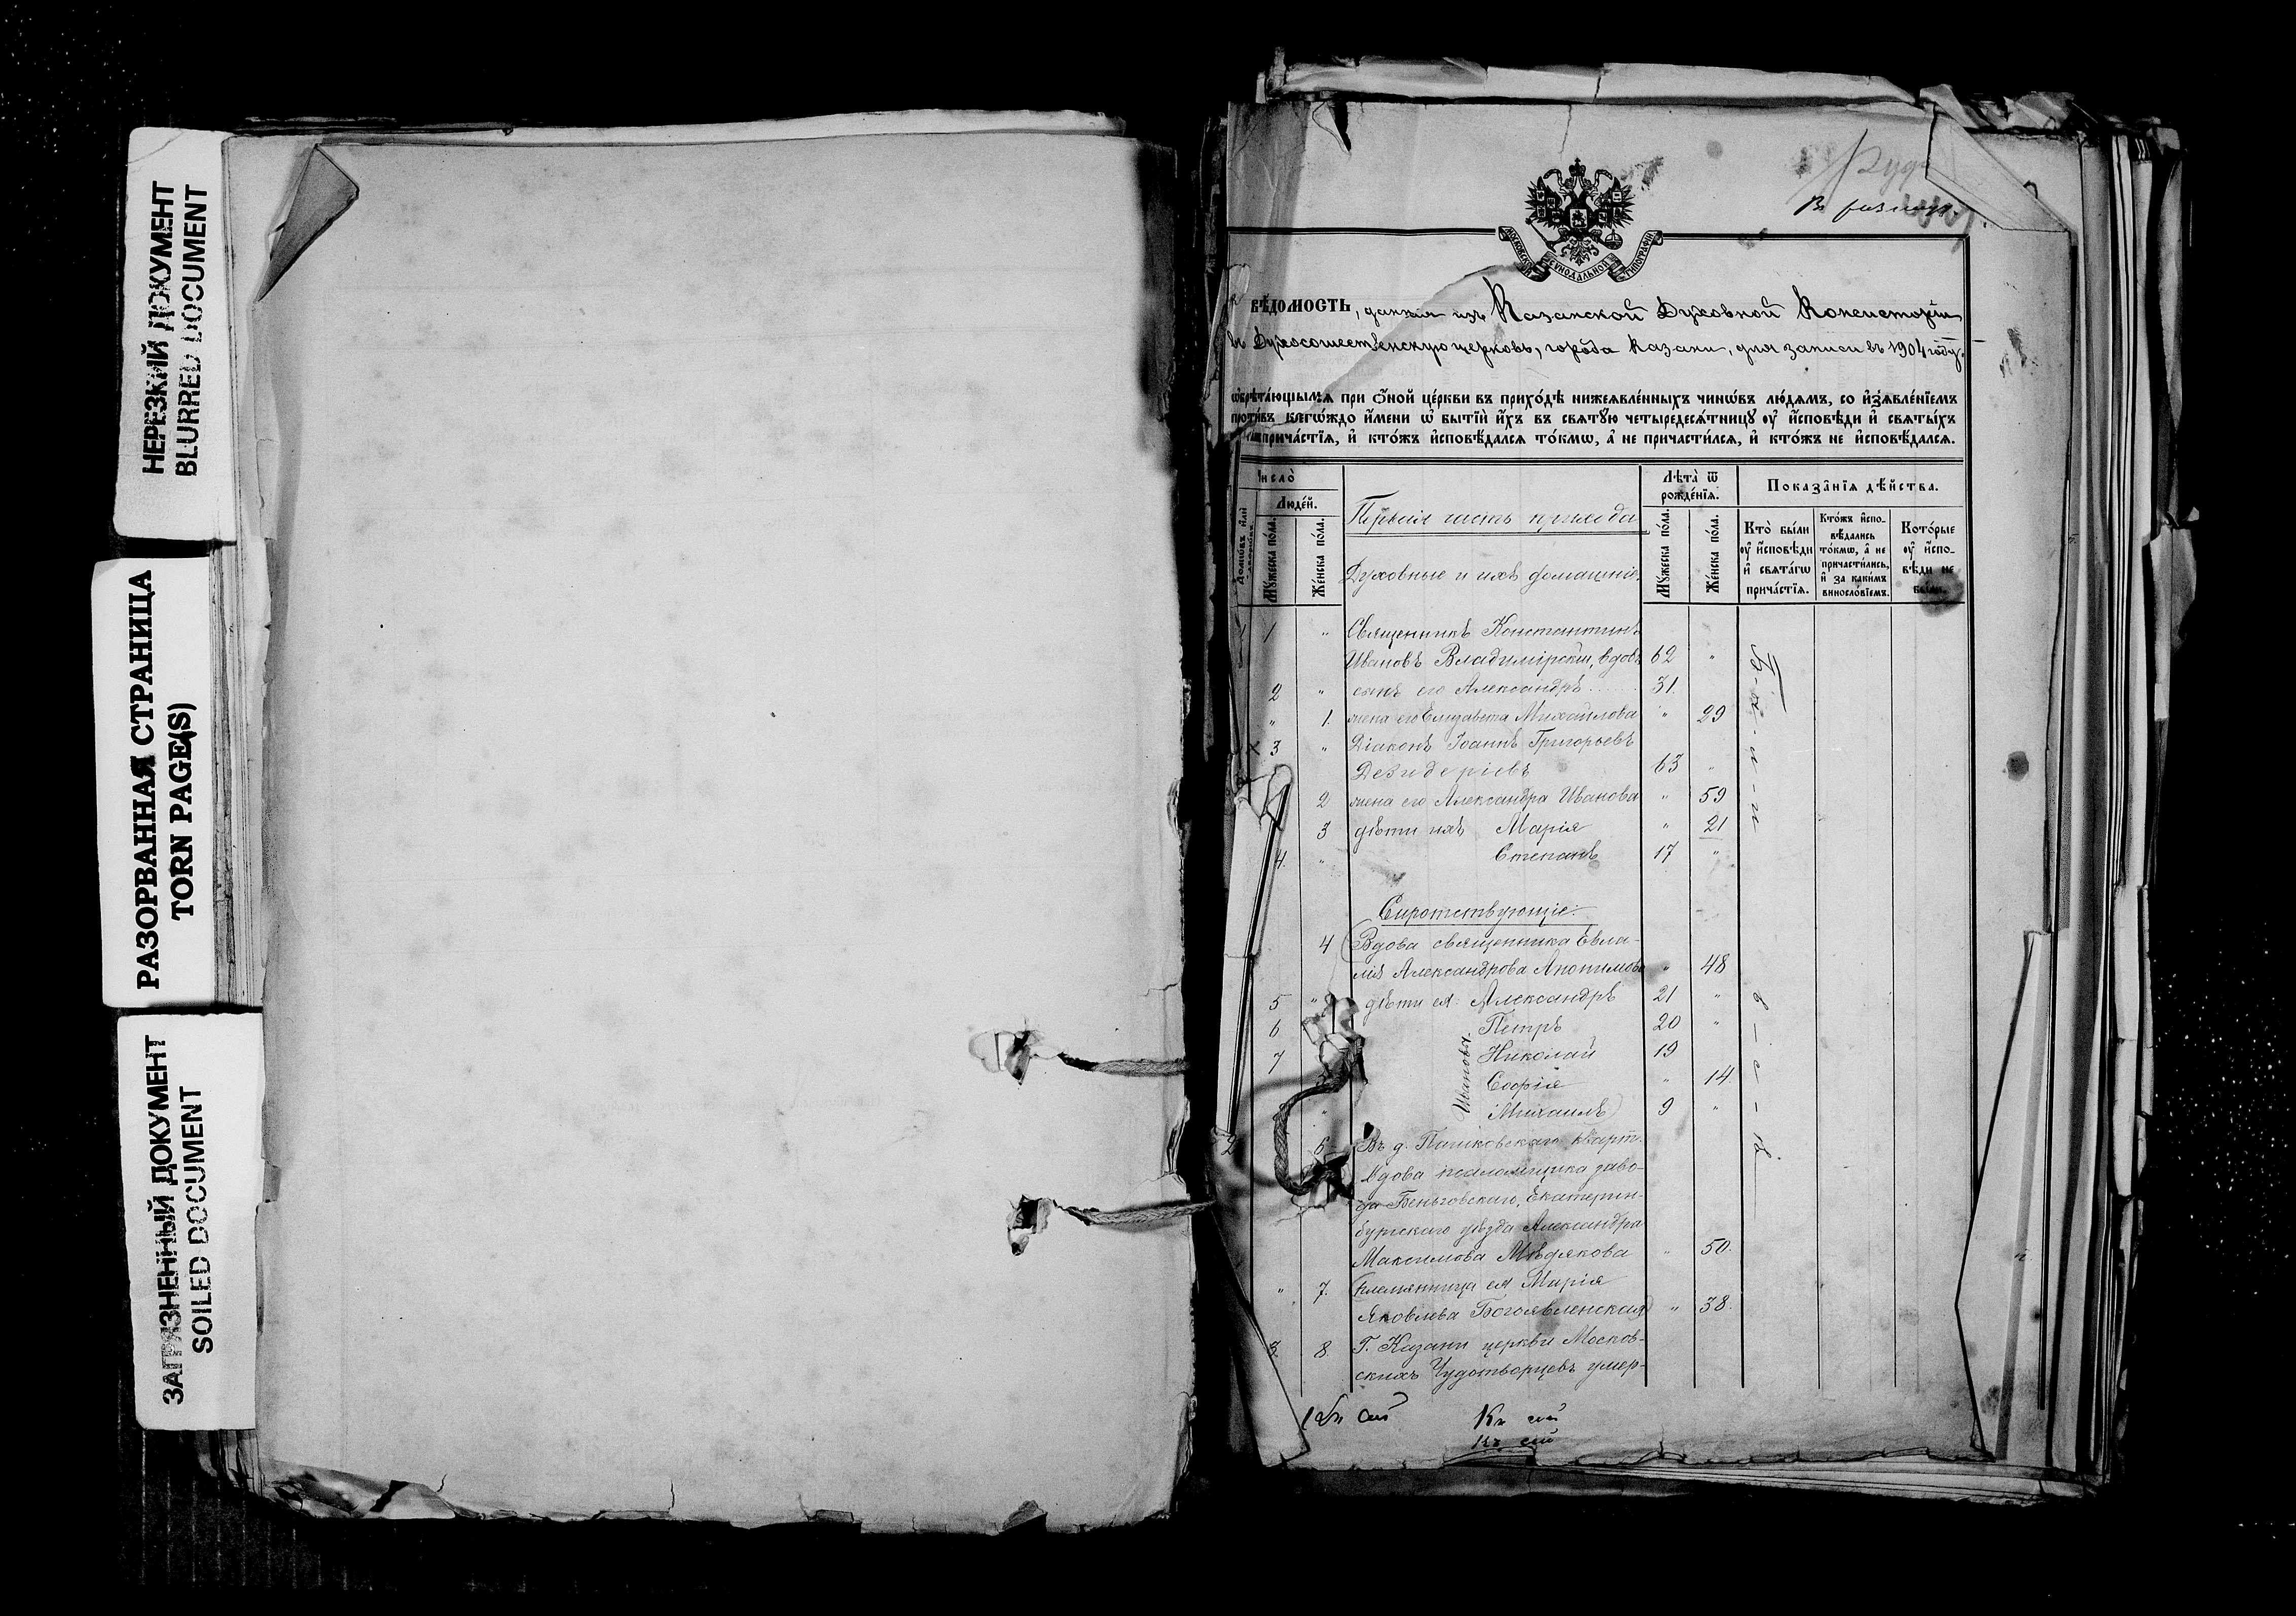 НЕРЕЗКИЙ ДОКУМЕНТ
BLURRED DOCUMENT
РАЗОРВАННАЯ СТРАНИЦА
TORN PAGE(S)
ЗАГРЯЗНЕННЫЙ ДОКУМЕНТ
SOILED DOCUMENT
МОСКОВСКОЙ СѴНОДАЛЬНОЙ ТИПОГРАФІИ
ВѢДОМОСТЬ, данная изъ Казанской Духовной Консисторіи
въ Духосошественскую церковь, города Казани, для записи въ 1904 году,
ѡбрѣта́ющымсѧ при ѻ҆́ной це́ркви въ прихо́дѣ нижеѧвле́нныхъ чинѡ́въ лю́демъ, со и҆зѧвле́нїемъ
проти́въ коегѡ́ждо и҆́мени ѡ҆ бытїѝ и҆́хъ въ свѧтꙋ́ю четыредесѧ́тницꙋ ᲂу҆ и҆сповѣ́ди и҆ свѧты́хъ
прича́стїѧ, и҆ кто́жъ и҆сповѣ́далсѧ то́кмѡ, а҆ не причасти́лсѧ, и҆ кто́жъ не и҆сповѣ́далсѧ.
Число̀
Люде́й.
Домѡ́въ и҆лѝ
Мꙋ́жеска по́ла.
Же́нска по́ла.
Первая часть прихода
Духовные и ихъ домашніе.
Лѣ́та ѿ рожде́нїѧ.
Мꙋ́жеска по́ла.
Же́нска по́ла.
Показа̑нїѧ дѣ́йства.
Кто̀ бы́ли ᲂу҆ и҆сповѣ́ди и҆ свѧта́гѡ прича́стїѧ.
Кто́жъ и҆сповѣ́дались то́кмѡ, а҆ не причасти́лись, и҆ за каки́мъ винословїемъ.
Кото́рые ᲂу҆ и҆сповѣ́ди не бы́ли.
1 1 " Священникъ Константинъ
Ивановъ Владимірскій, вдовъ 62 "
2 " сынъ его Александръ 31.
" 1. жена его Елизавета Михайлова " 29
3 " Діаконъ Іоаннъ Григорьевъ
Дезидеріевъ 63 "
2 жена его Александра Иванова " 59
3 дѣти ихъ Марія " 21
4. " Степанъ 17 "
Сиротствующіе:
4 (Вдова священника Евла-
лія Александрова " 48
5 " дѣти ея: Александръ 21 "
6 Петръ 20 "
7 Николай 19
Софія " 14
" Михаилъ) 9 "
Ивановы
2 6 Въ д. кварт.
Вдова псаломщика заво-
да Екатерин-
бургскаго уѣзда Александра
Максимова Мѣдякова " 50.
" 7. племянница ея Марія
Яковлева Богоявленская) " 38.
3 8. Г. Казани церкви Москов-
скихъ Чудотворцевъ умер-